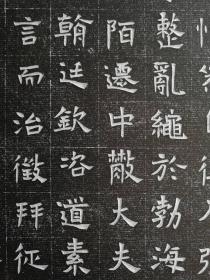 整亂繩於勃海
陌遷中散大夫
朝廷欽道素
言而治徵拜征